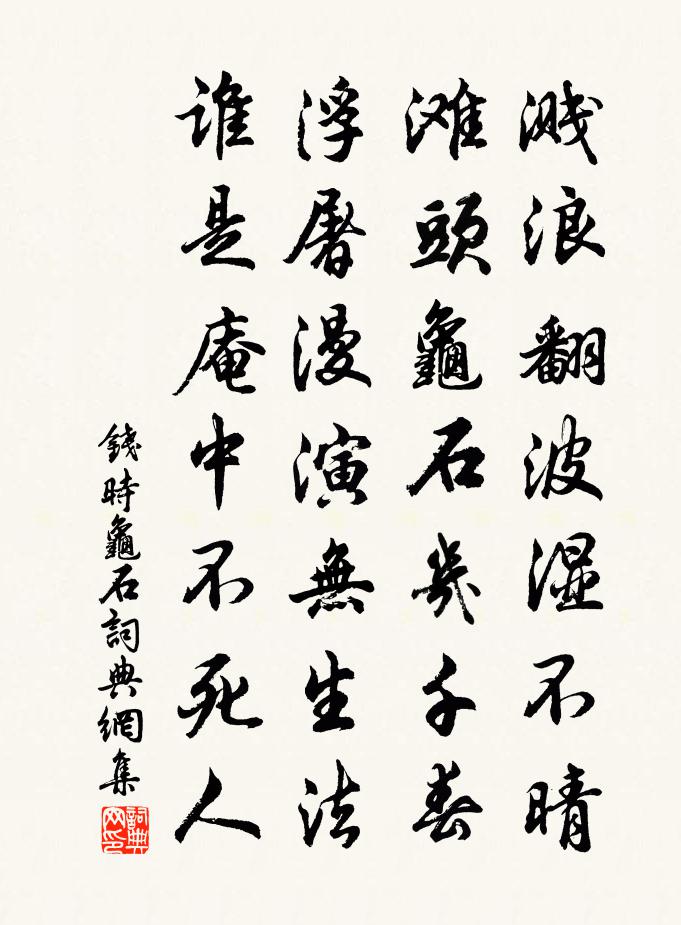 溅浪翻波湿不晴
滩頭龜石幾千春
浮屠漫演無生法
誰是庵中不死人
錢時龜石詞典網集
詞典网印